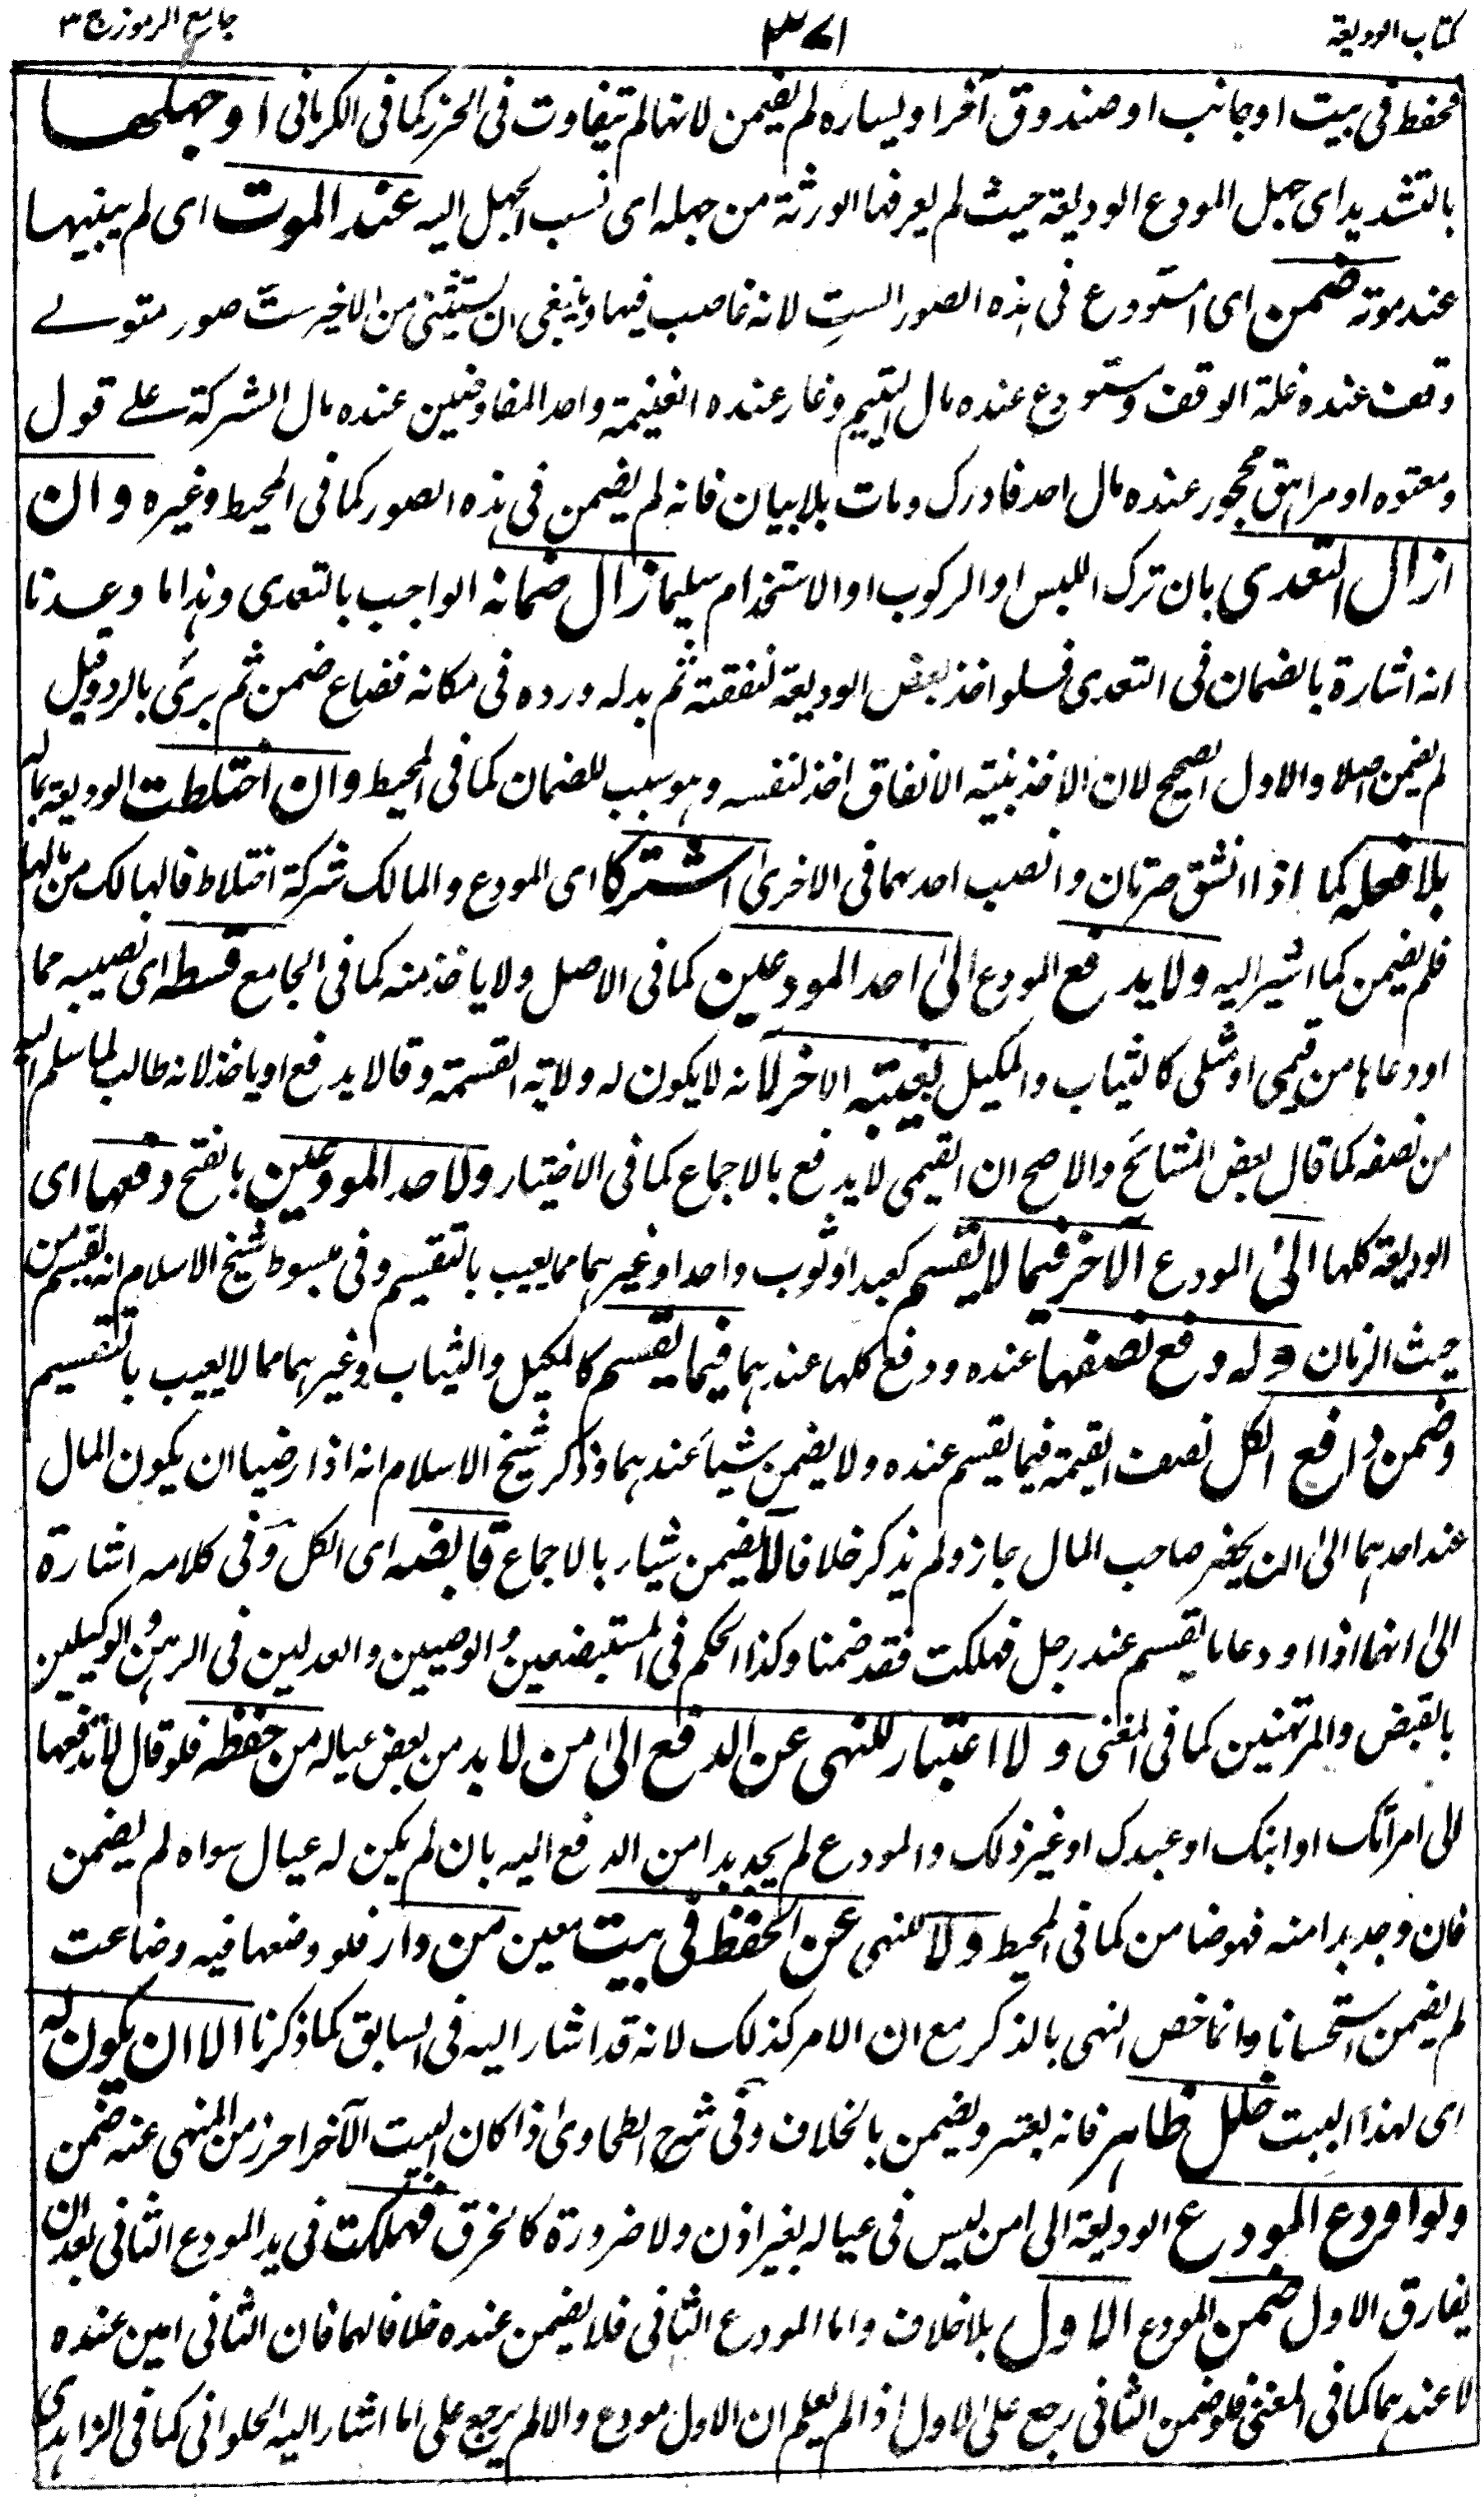 كتاب الوديعة ٣٧١ جامع الرموز ج ٣
فحفظ فى بيت او جانب او صندوق آخر او يساره لم يضمن لانها لم تتفاوت فى الحرز كما فى الكرمانى او جهلها
بالتشديد اى جهل المودع الوديعة حيث لم يعرفها الورثة من جهله اى نسب الجهل اليه عند الموت اى لم يبينها
عند موته ضمن اى المستودع فى هذه الصور الست لانه غاصب فيها وينبغى ان يستثنى من الاخير ست صور متولے
وقف عنده غلة الوقف ومستودع عنده مال اليتيم وغاز عنده الغنيمة واحد المفاوضين عنده مال الشركة على قول
ومعتوه او مراهق محجور عنده مال احد فادرك ومات بلا بيان فانه لم يضمن فى هذه الصور كما فى المحيط وغيره وان
ازال التعدى بان ترك اللبس او الركوب او الاستخدام سليما زال ضمانه الواجب بالتعدى وهذا ما وعدنا
انه اشارة بالضمان فى التعدى فلو اخذ بعض الوديعة لنفقته ثم بدله ورده فى مكانه فضاع ضمن ثم برئ بالرد وقيل
لم يضمن اصلا والاول الصحيح لان الاخذ بنية الانفاق اخذ لنفسه وهو سبب للضمان كما فى المحيط وان اختلطت الوديعة بماله
بلا فعله كما اذا انشق صرتان وانصب احدهما فى الاخرى اشتركا اى المودع والمالك شركة اختلاط فالهالك من مالهما
فلم يضمن كما اشير اليه ولا يدفع المودع الى احد المودعين كما فى الاصل ولا ياخذ منه كما فى الجامع قسطه اى نصيبه مما
اودعاها من قيمى او مثلى كالثياب والمكيل بغيبة الاخر لانه لا يكون له ولاية القسمة وقالا يدفع او ياخذ لانه طالب لما سلم اليه
من نصفه كما قال بعض المشائخ والاصح ان القيمى لا يدفع بالاجماع كما فى الاختيار ولاحد المودعين بالفتح دفعها اى
الوديعة كلها الى المودع الآخر فيما لا يقسم كعبد او ثوب واحد او غيرهما مما يعيب بالتقسيم وفى مبسوط شيخ الاسلام انه يقسم من
حيث الزمان وله دفع نصفها عنده ودفع كلها عندهما فيما يقسم كالمكيل والثياب وغيرهما مما لا يعيب بالتقسيم
وضمن دافع الكل نصف القيمة فيما يقسم عنده ولا يضمن شيأ عندهما وذكر شيخ الاسلام انه اذا رضيا ان يكون المال
عند احدهما الى ان يحضر صاحب المال جاز ولم يذكر خلافا لا يضمن شيأ بالاجماع قابضه اى الكل وفى كلامه اشارة
الى انهما اذا اودعا ما يقسم عند رجل فهلكت فقد ضمنا وكذا الحكم فى المستبضعين والوصيين والعدلين فى الرهن والوكيلين
بالقبض والمرتهنين كما فى المغنى و لا اعتبار للنهى عن الدفع الى من لا بد من بعض عياله من حفظه فلو قال لا تدفعها
الى امرأتك او ابنك او عبدك او غير ذلك والمودع لم يجد بدا من الدفع اليه بان لم يكن له عيال سواه لم يضمن
فان وجد بدا منه فهو ضامن كما فى المحيط ولا للنهى عن الحفظ فى بيت معين من دار فلو وضعها فيه وضاعت
لم يضمن استحسانا وانما خص النهى بالذكر مع ان الامر كذلك لانه قد اشار اليه فى السابق كما ذكرنا الا ان يكون له
اى لهذا البيت خلل ظاهر فانه يعتبر ويضمن بالخلاف وفى شرح الطحاوى اذا كان البيت الآخر احرز من المنهى عنه ضمن
ولو اودع المودع الوديعة الى من ليس فى عياله بغير اذن ولا ضرورة كالحرق فهلكت فى يد المودع الثانى بعد ان
يفارق الاول ضمن المودع الاول بلا خلاف واما المودع الثانى فلا يضمن عنده خلافا لهما فان الثانى امين عنده
لا عندهما كما فى المغنى فلو ضمن الثانى رجع على الاول اذا لم يعلم ان الاول مودع والا لم يرجع على ما اشار اليه الحلوانى كما فى الزاهدى